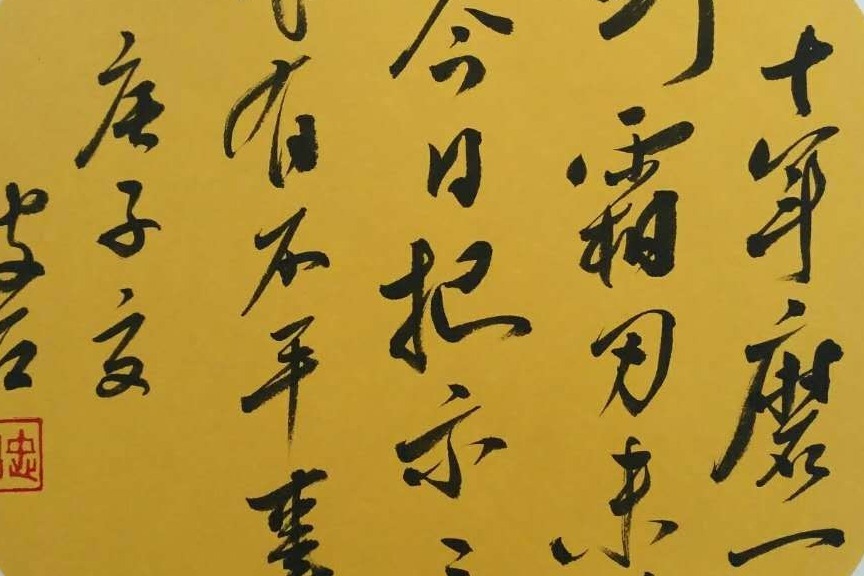 十年磨一
霜刃未
今日把示
有不平事
庚子夏
忠